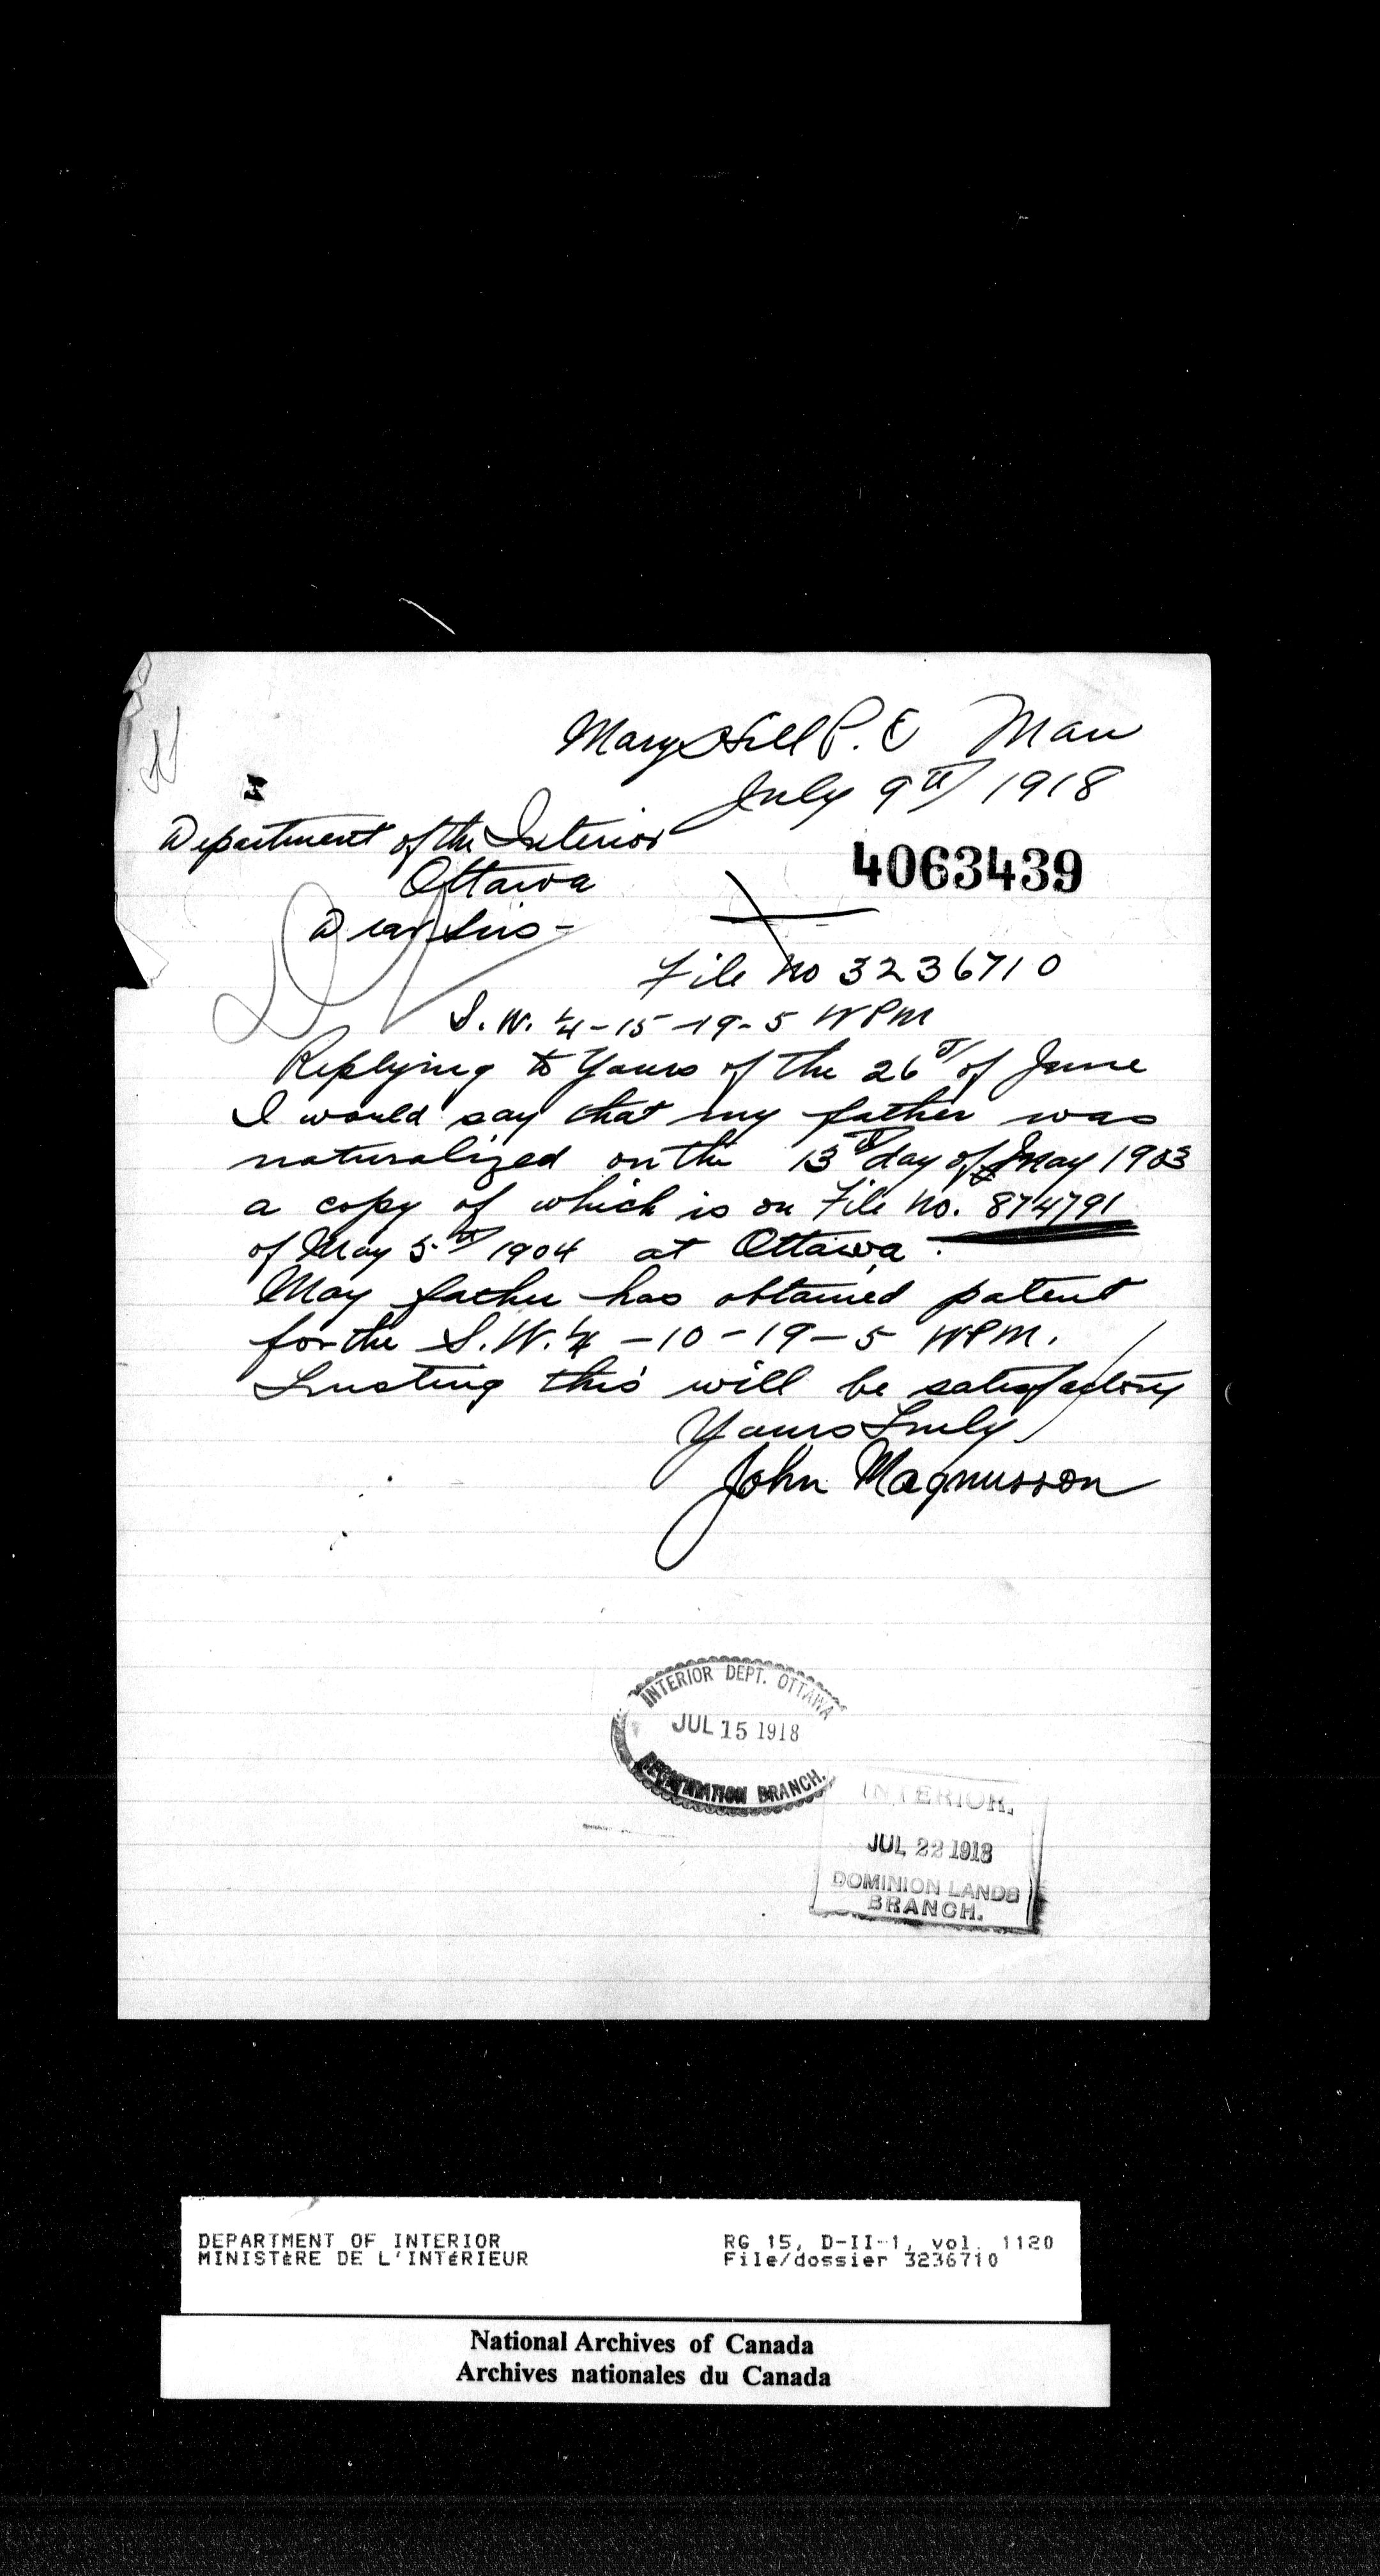 Mary Hill P.O Man
July 9th 1918
Department of the Interior
Ottawa
4063439
Dear Sirs -
File no 3236710
S.W. ¼ - 15 - 19 - 5 WPM
Replying to Yours of the 26th of June
I would say that my father was
naturalized on the 13th day of May 1903
a copy of which is on File no. 874791
of May 5th 1904 at Ottawa.
May father has obtained patent
for the S.W. ¼ - 10 - 19 - 5 WPM.
Trusting this will be satisfactory
Yours Truly
John Magnusson
INTERIOR DEPT. OTTAWA
JUL 15 1918
REGISTRATION BRANCH.
INTERIOR.
JUL 22 1918
DOMINION LANDS
BRANCH.
DEPARTMENT OF INTERIOR RG 15, D-II-1, vol. 1120
MINISTÈRE DE L'INTÉRIEUR File/dossier 3236710
National Archives of Canada
Archives nationales du Canada